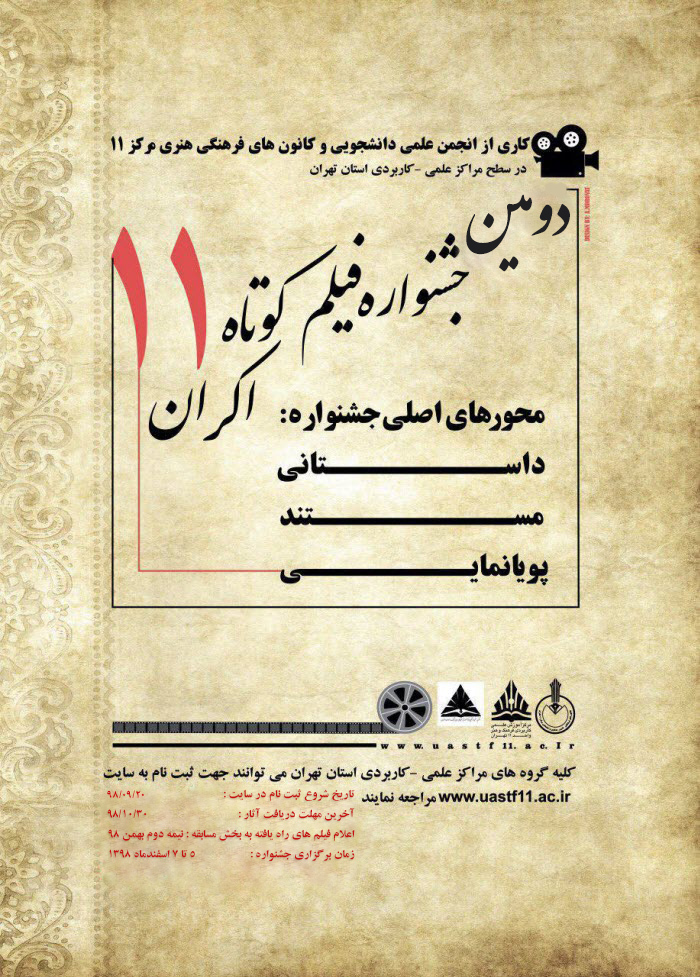 کاری از انجمن علمی دانشجویی و کانون های فرهنگی هنری مرکز ۱۱
در سطح مراکز علمی -کاربردی استان تهران
دومین
جشنواره فیلم کوتاه ۱۱
اکران
محورهای اصلی جشنواره:
داستانی
مستند
پویانمایی
مرکز آموزش علمی
کاربردی فرهنگ و هنر
واحد ۱۱ تهران
www.uastf11.ac.Ir
کلیه گروه های مراکز علمی -کاربردی استان تهران می توانند جهت ثبت نام به سایت
www.uastf11.ac.ir مراجعه نمایند
تاریخ شروع ثبت نام در سایت : ۹۸/۰۹/۲۰
آخرین مهلت دریافت آثار : ۹۸/۱۰/۳۰
اعلام فیلم های راه یافته به بخش مسابقه : نیمه دوم بهمن ۹۸
زمان برگزاری جشنواره : ۵ تا ۷ اسفندماه ۱۳۹۸